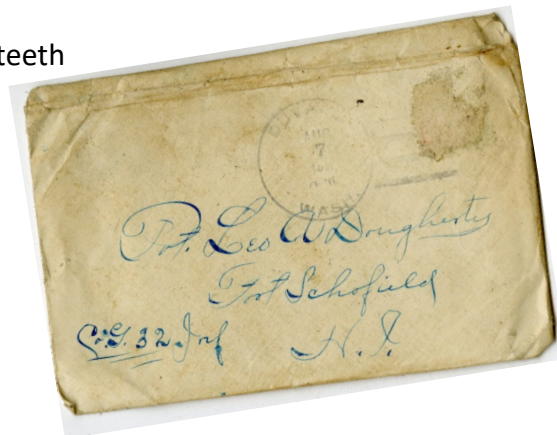 teeth
AUG
7
WASH.
Pvt. Leo A Dougherty
Fort Schofield
Co. G. 32 Inf
H. I.